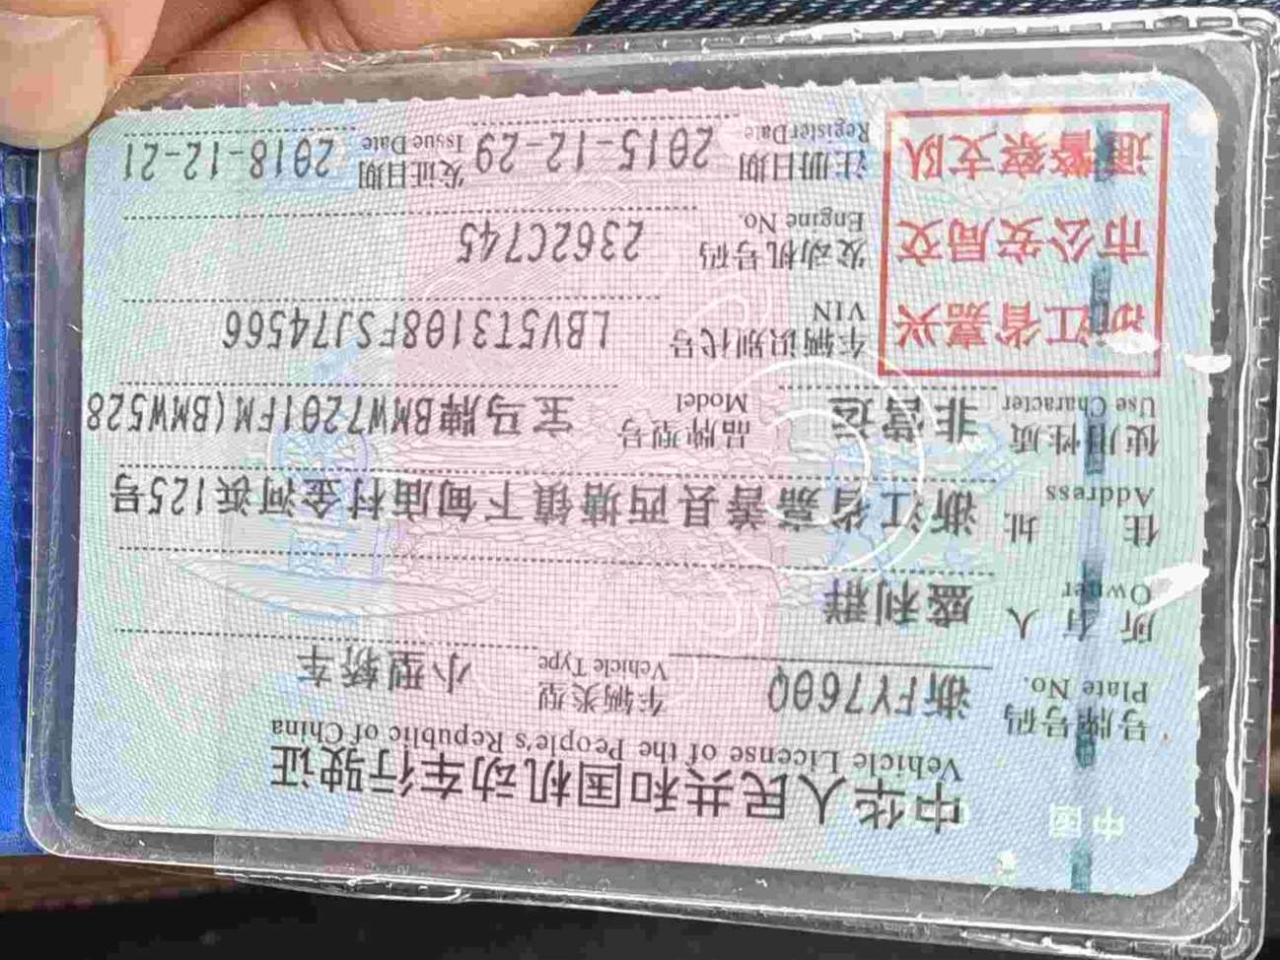 中国
中华人民共和国机动车行驶证
Vehicle License of the People's Republic of China
号牌号码 浙FY760Q 车辆类型 小型轿车
Plate No. Vehicle Type
所有人 盛利群
Owner
住址 浙江省嘉善县西塘镇下甸庙村金河浜125号
Address
使用性质 非营运 品牌型号 宝马牌BMW7201FM(BMW528
Use Character Model
浙江省嘉兴
市公安局交
通警察支队
车辆识别代号 LBV5T3108FSJ74566
VIN
发动机号码 2362C745
Engine No.
注册日期 2015-12-29 发证日期 2018-12-21
Register Date Issue Date